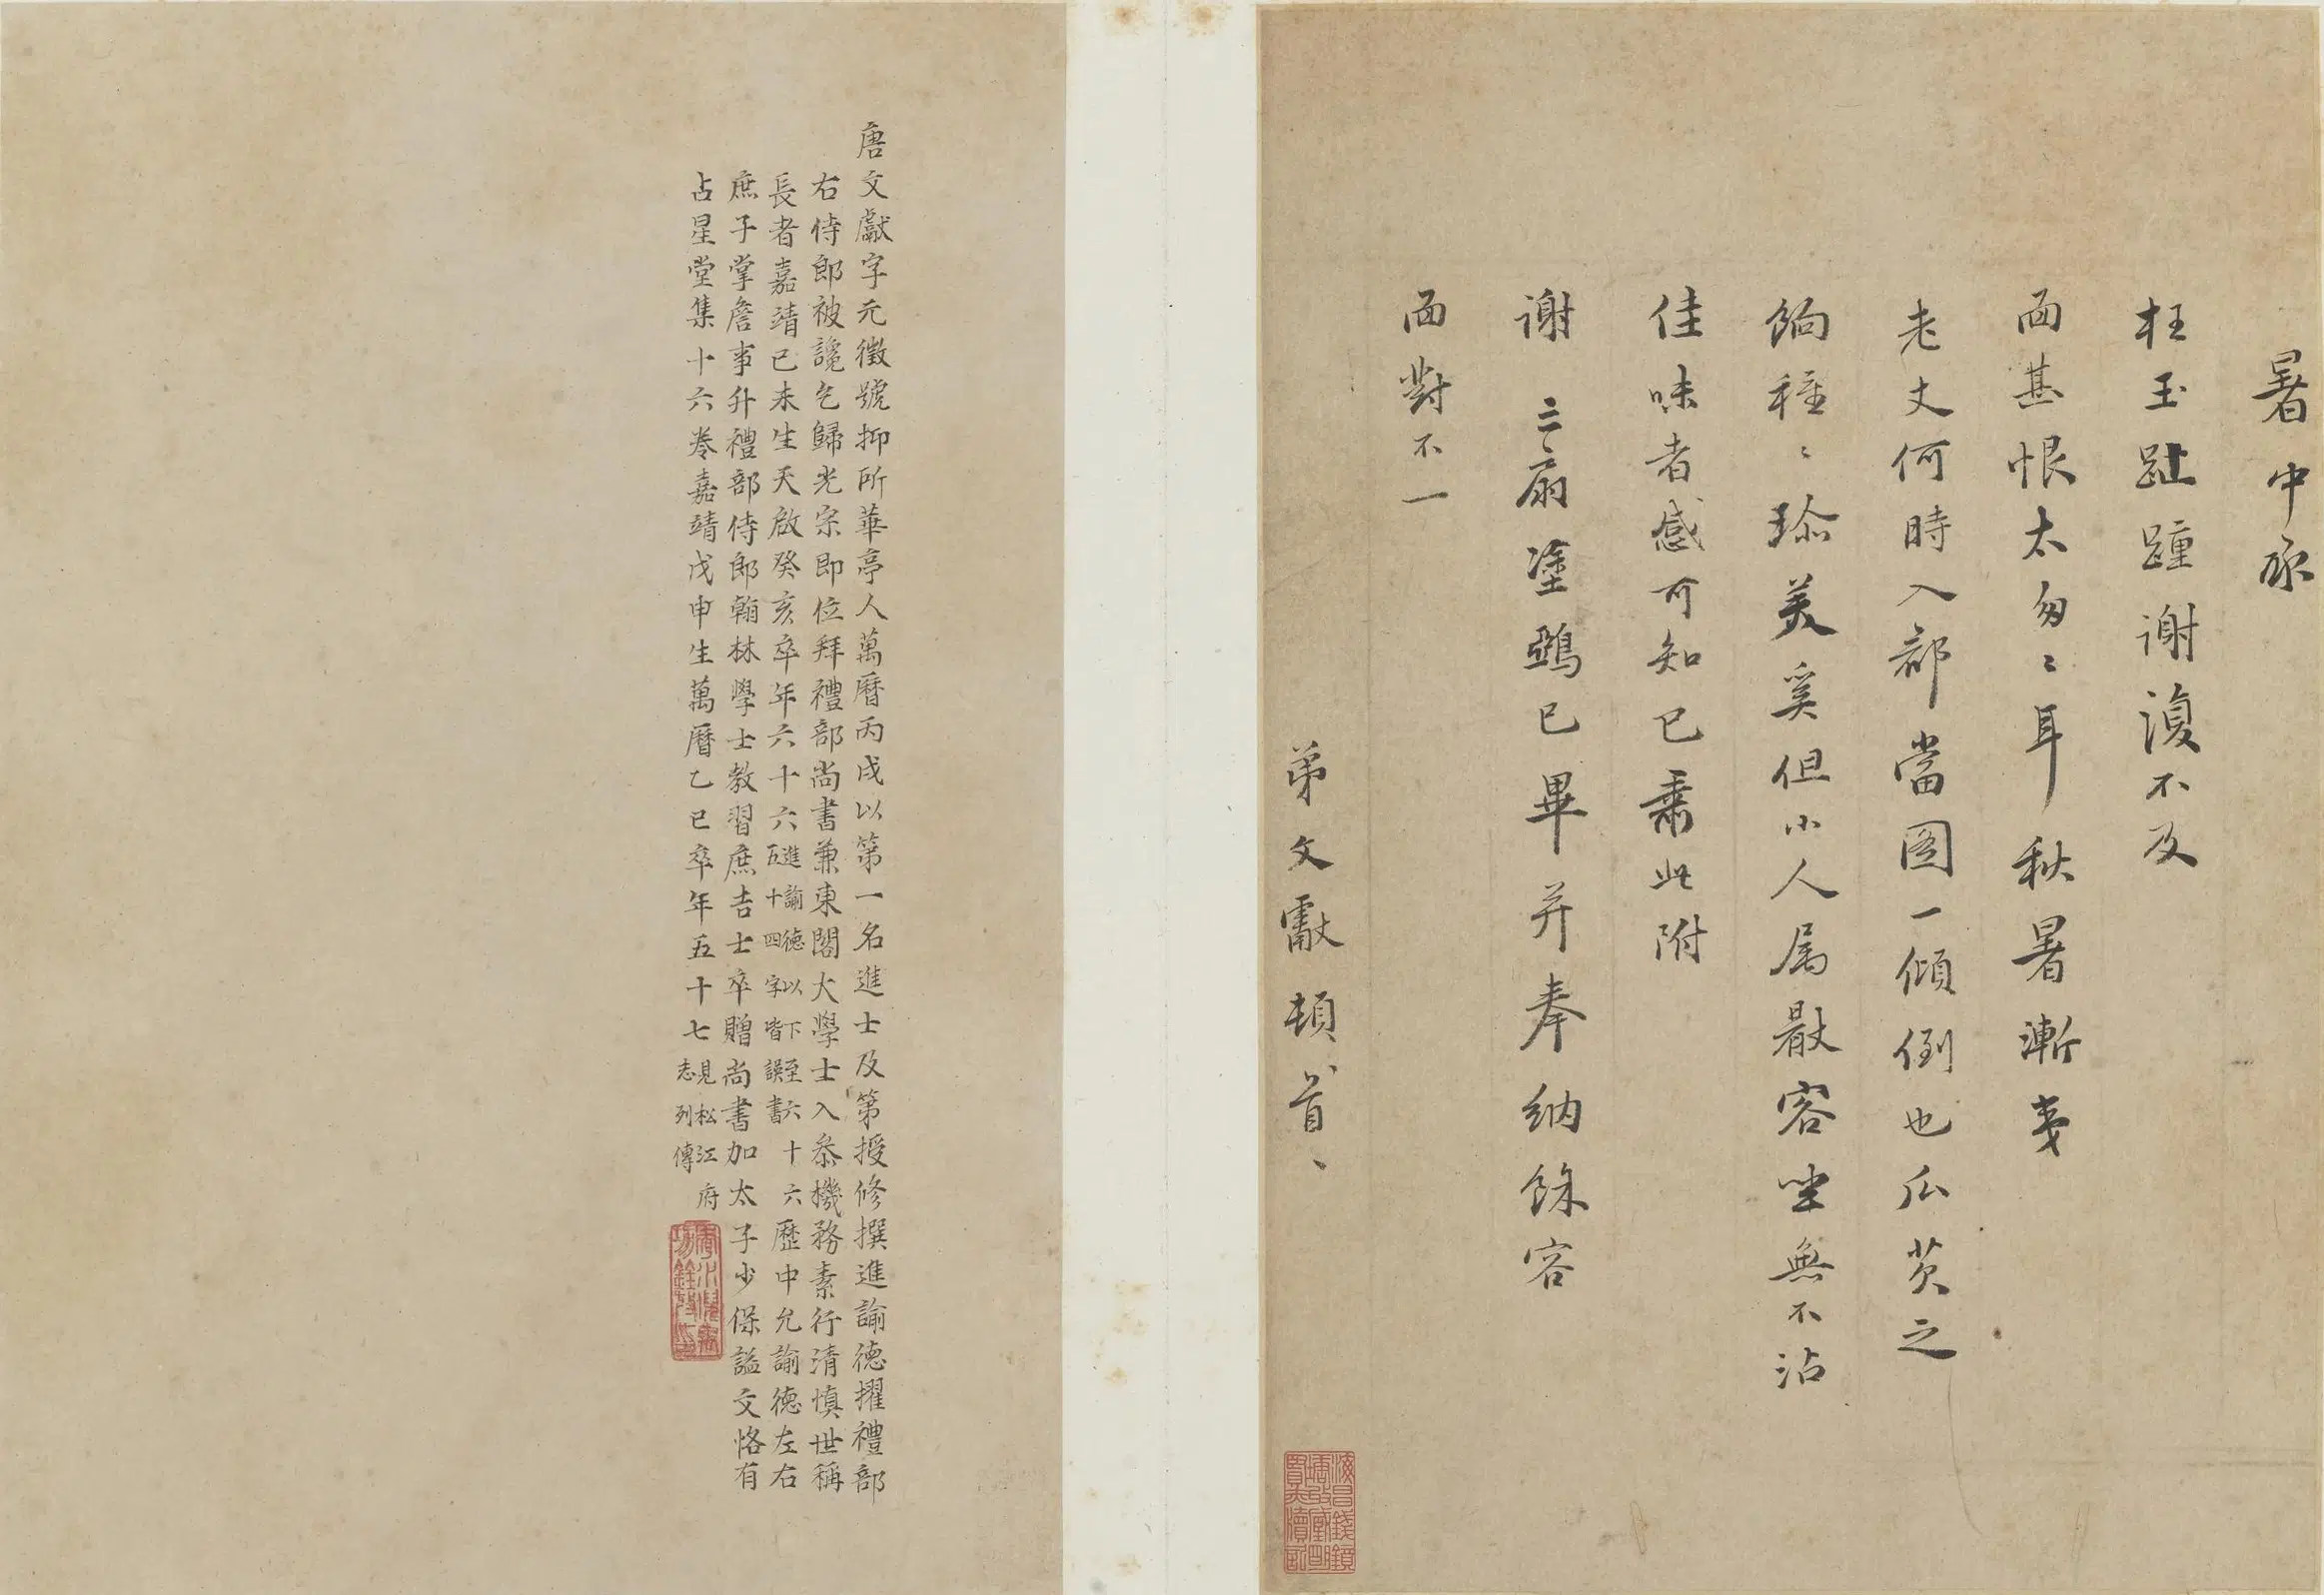 暑中承
枉玉趾踵謝復不及
面甚恨太匆〻耳秋暑漸
老丈何時入都當圖一傾倒也瓜茨之
餉種〻珍美奚但小人属厭容坐無不沾
佳味者感可知已乘此附
謝二扇塗鴉已畢并奉納餘容
面對不一
弟文獻頓首
唐文獻字元徵號抑所華亭人萬曆丙戌以第一名進士及第授修撰進諭德擢禮部
右侍郎被讒乞歸光宗即位拜禮部尚書兼東閣大學士入叅機務素行清慎世稱
長者嘉靖己未生天啟癸亥卒年六十六進諭德以下至六十六五十四字皆誤書歷中允諭德左右
庶子掌詹事升禮部侍郎翰林學士教習庶吉士卒贈尚書加太子少保謚文恪有
占星堂集十六卷嘉靖戊申生萬曆乙巳卒年五十七見松江府志列傳